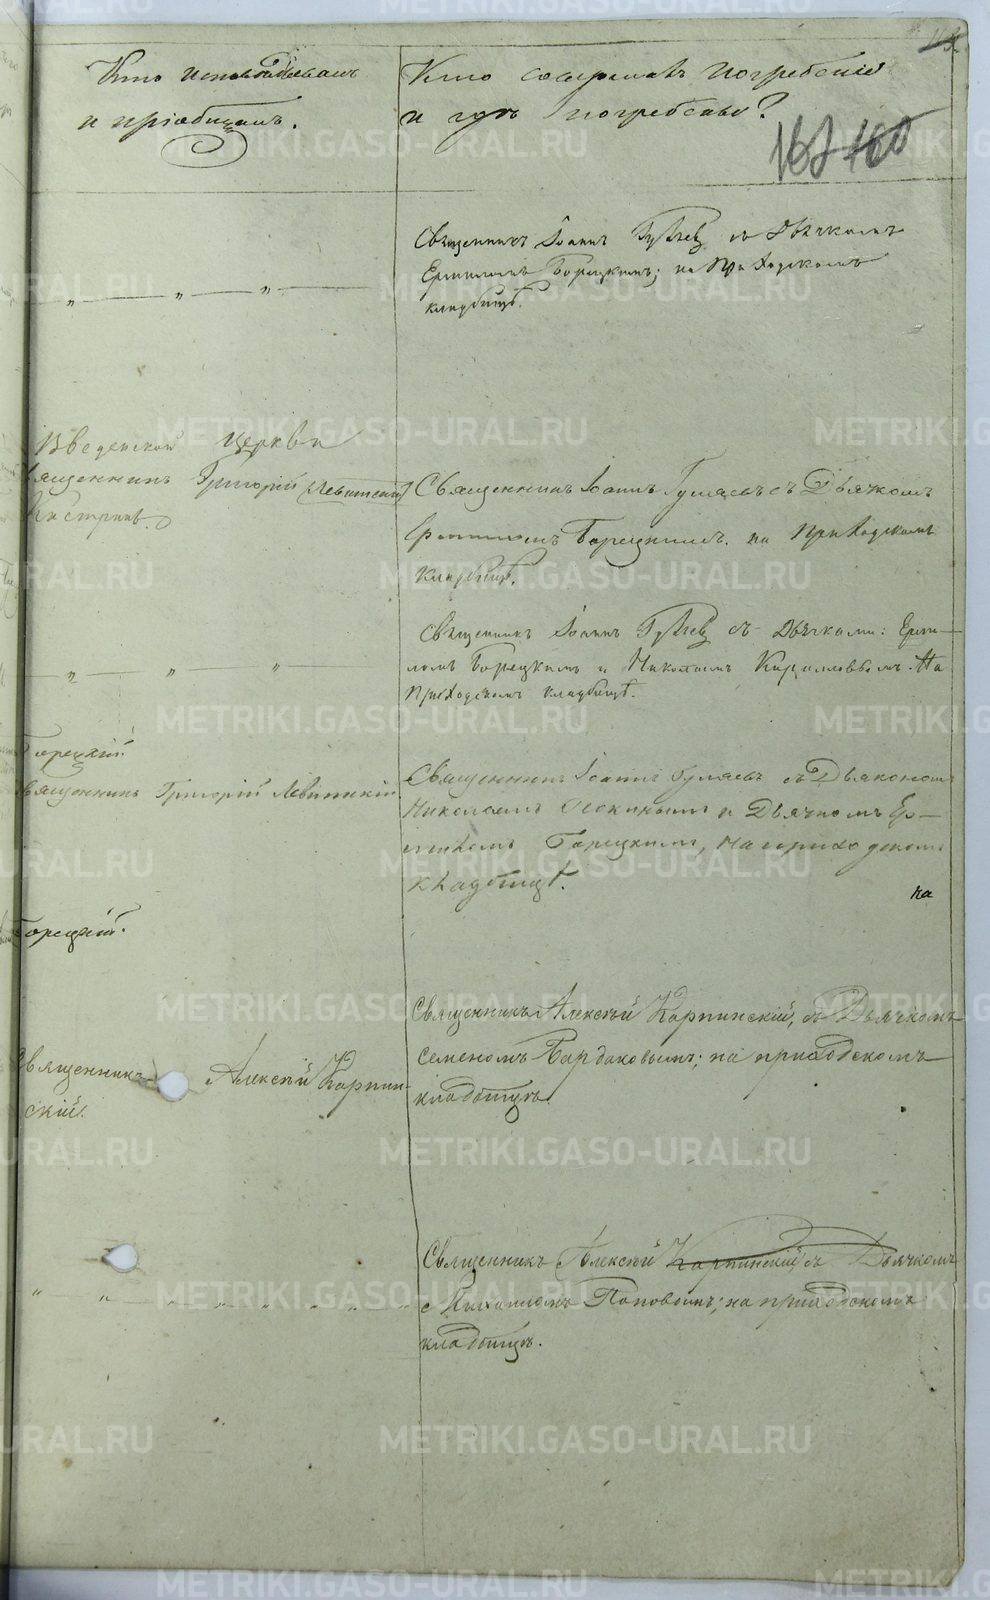 Кто исповѣдывалъ
и пріобщалъ.
Кто совершалъ погребеніе
и гдѣ погребены?
167 160
Священникъ Іоаннъ Гуляевъ съ Дьячкомъ
Ермиломъ Борецкимъ; на приходскомъ
кладбищѣ.
Введенской церкви
Священникъ Григорій Левитскій
Священникъ Іоаннъ Гуляевъ съ Дьячкомъ
Ермиломъ Борецкимъ. на приходскомъ
кладбищѣ.
Священникъ Іоаннъ Гуляевъ съ Дьячками: Ерми-
ломъ Борецкимъ и Николаемъ Кирилловымъ. На
приходскомъ кладбищѣ.
Борецкій.
Священникъ Григорій Левитскій
Священникъ Іоаннъ Гуляевъ съ Дьякономъ
Николаемъ и Дьячкомъ Ер-
Борецкимъ, на приходскомъ
кладбищѣ.
на
Борецкій.
Священникъ Алексѣй Карпинскій, съ Дьячкомъ
Семеномъ Бардаковымъ; на приходскомъ
кладбищѣ.
Священникъ Алексѣй Карпин-
скій.
Священникъ Алексѣй Карпинскій съ Дьячкомъ
Михаиломъ Поповымъ; на приходскомъ
кладбищѣ.
METRIKI.GASO-URAL.RU